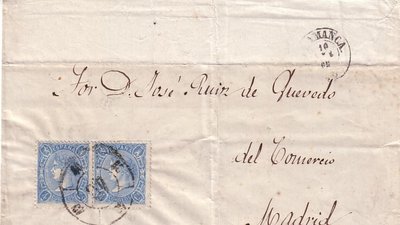 AMANCA.
10
Sor D. José Ruiz de Quevedo
del Comercio
Madrid